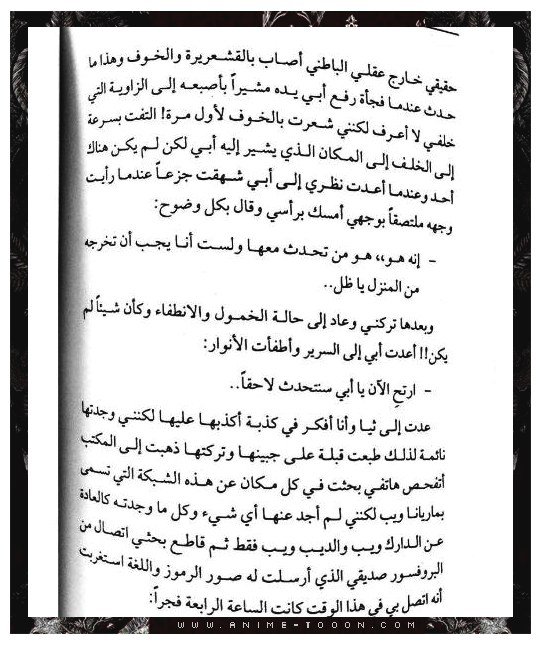 حقيقي خارج عقلي الباطني أصاب بالقشعريرة والخوف وهذا ما
حدث عندما فجأة رفع أبي يده مشيراً بأصبعه إلى الزاوية التي
خلفي لا أعرف لكنني شعرت بالخوف لأول مرة! التفت بسرعة
إلى الخلف إلى المكان الذي يشير إليه أبي لكن لم يكن هناك
أحد وعندما أعدت نظري إلى أبي شهقت جزعاً عندما رأيت
وجهه ملتصقاً بوجهي أمسك برأسي وقال بكل وضوح:
- إنه هو،، هو من تحدث معها ولست أنا يجب أن تخرجه
من المنزل يا ظل..
وبعدها تركني وعاد إلى حالة الخمول والانطفاء وكأن شيئاً لم
يكن!! أعدت أبي إلى السرير وأطفأت الأنوار:
- ارتح الآن يا أبي سنتحدث لاحقاً..
عدت إلى ثيا وأنا أفكر في كذبة أكذبها عليها لكنني وجدتها
نائمة لذلك طبعت قبلة على جبينها وتركتها ذهبت إلى المكتب
أتفحص هاتفي بحثت في كل مكان عن هذه الشبكة التي تسمى
بماريانا ويب لكنني لم أجد عنها أي شيء وكل ما وجدته كالعادة
عن الدارك ويب والديب ويب فقط ثم قاطع بحثي اتصال من
البروفسور صديقي الذي أرسلت له صور الرموز واللغة استغربت
أنه اتصل بي في هذا الوقت كانت الساعة الرابعة فجراً:
WWW.ANIME-TOOON.COM